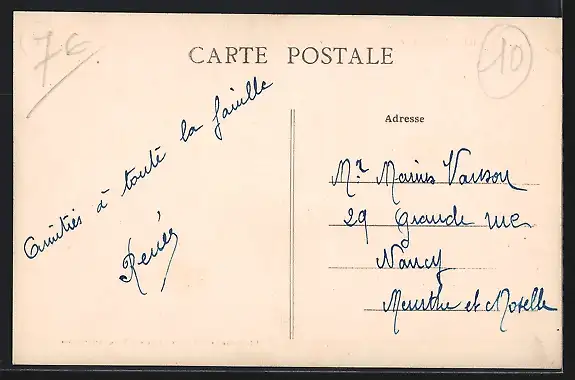 7€
10
CARTE POSTALE
Amitiés à toute la famille
Renée
Adresse
Mr Marius Vauson
29 Grande rue
Nancy
Meurthe et Moselle